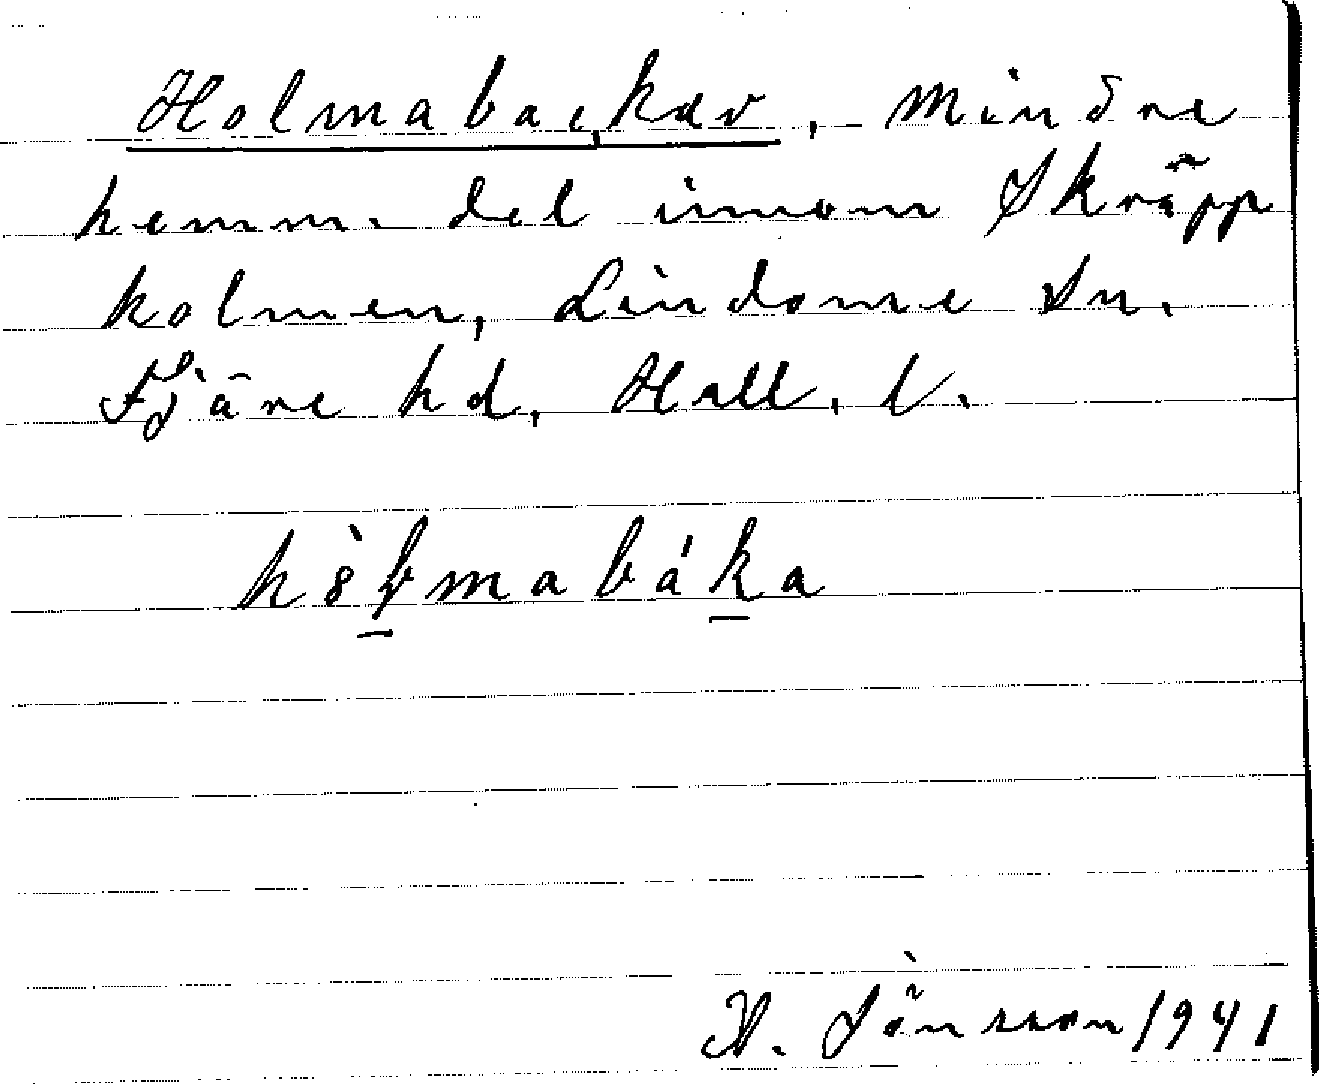 Holmabackar, mindre
hemm. del innom Skräpp
holmen, Lindome Sn.
Fjäre hd, Hall. l.
H. Jönsson 1941